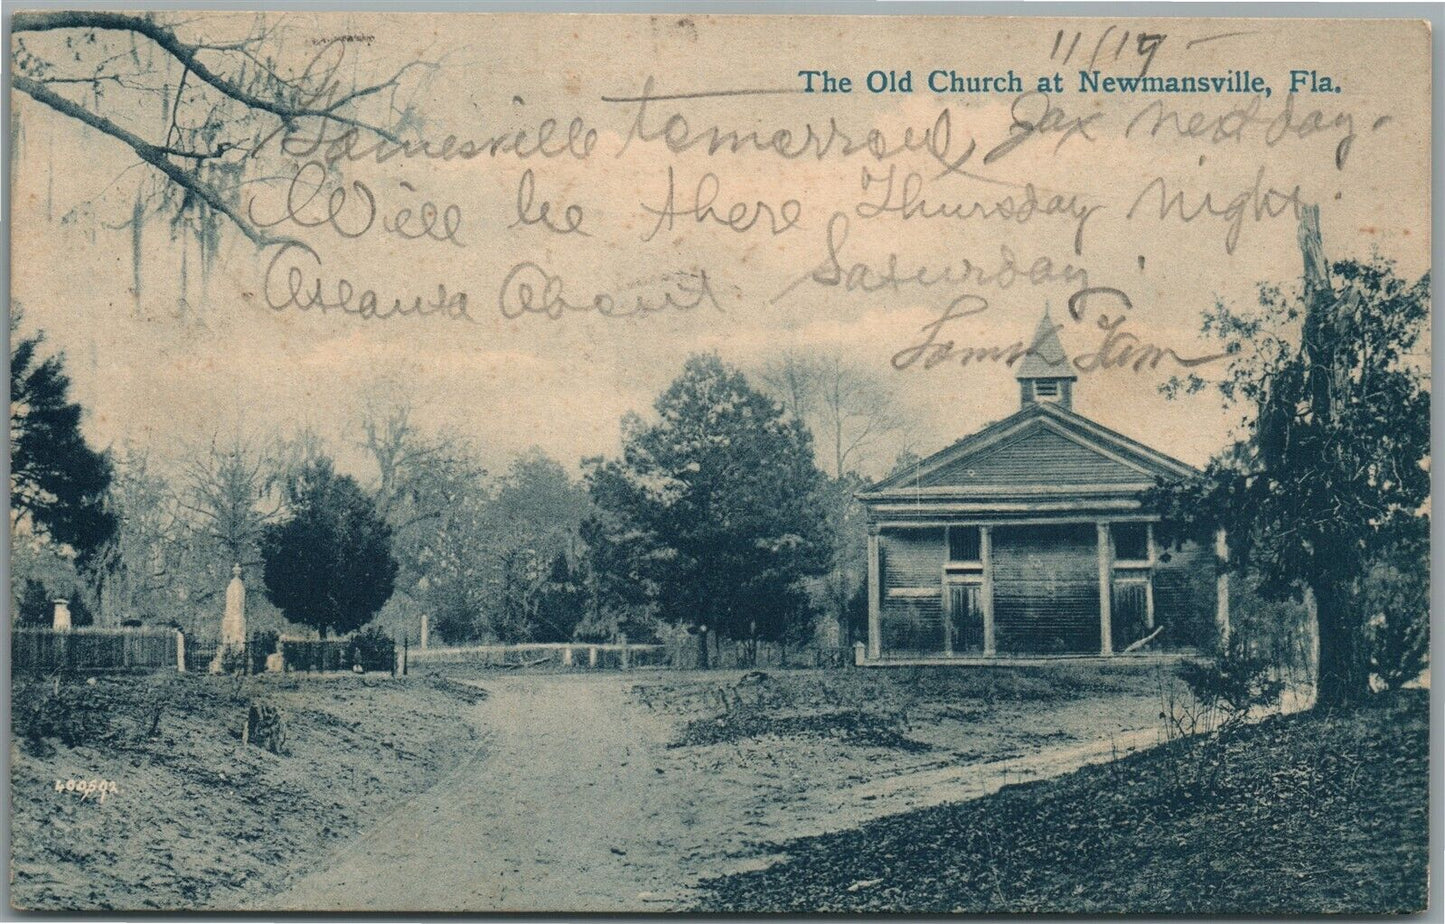 11/19
The Old Church at Newmansville, Fla.
Gainesville tomorrow, Jax next day.
Will be there Thursday night.
Atlanta About Saturday.
400592